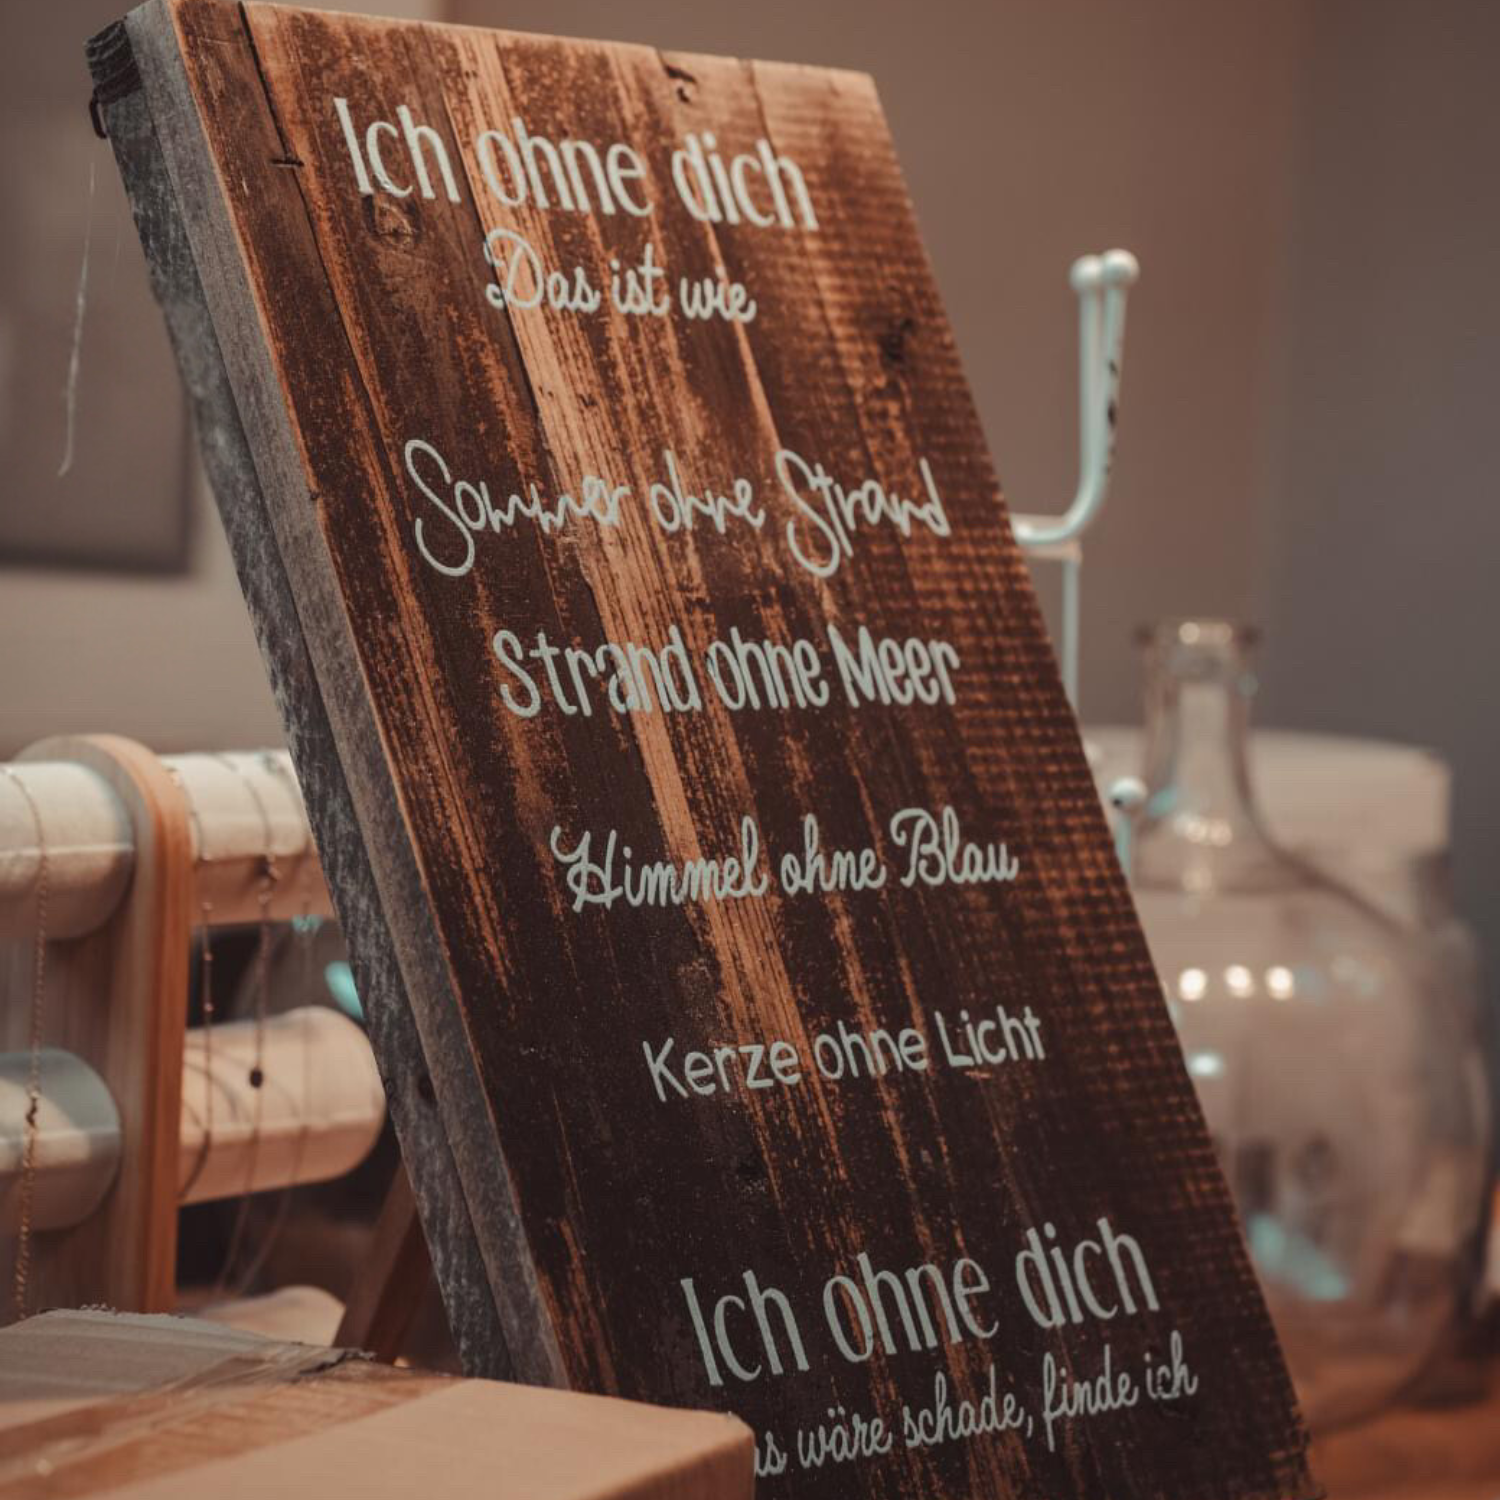 Ich ohne dich
Das ist wie
Sommer ohne Strand
Strand ohne Meer
Himmel ohne Blau
Kerze ohne Licht
Ich ohne dich
wäre schade, finde ich